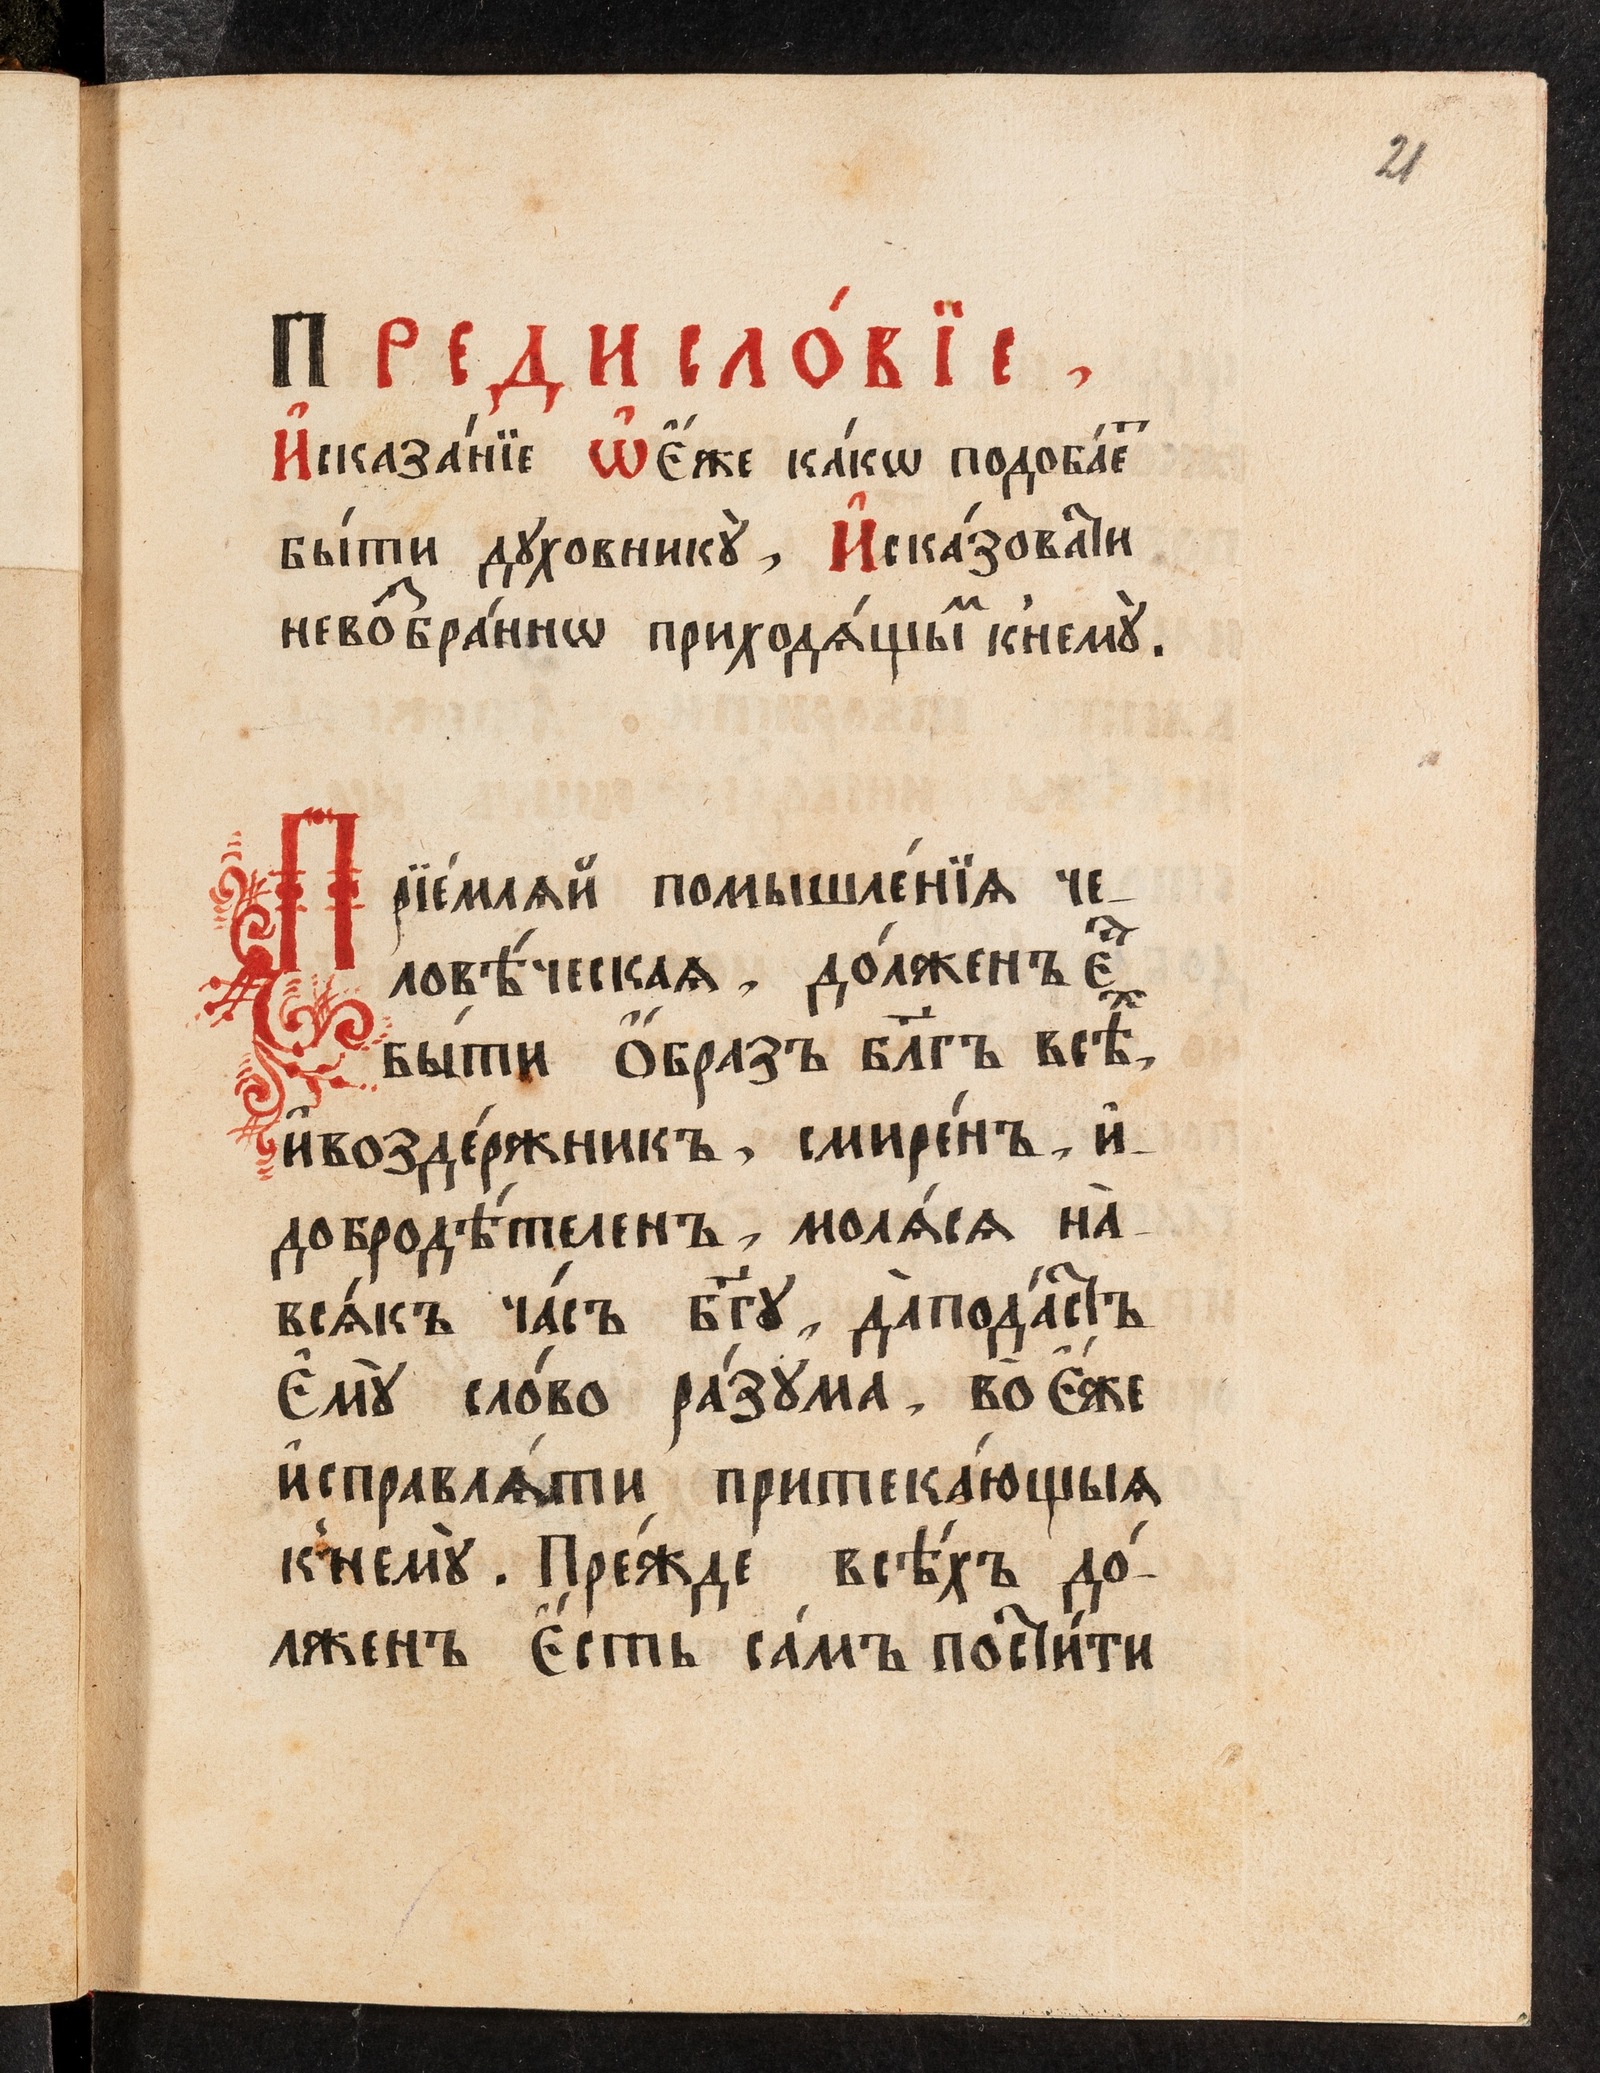 21
Предисло́вїе,
И҆сказа́нїе ѡ҆є҆́же ка́кѡ подоба́еⷮ
бы́ти духовникꙋ̀, И҆сказова́ⷭ҇ти
невоⷥбра́ннѡ приходѧ́щыⷨ к̾немꙋ̀.
Прїе́млѧй помышле́нїѧ че-
ловѣ́ческаѧ, до́лженъ є҆́ⷭ҇
бы́ти Ѻ҆́бразъ бл҃гъ всѣⷯ,
и҆воздержникъ, смире́нъ, и҆-
добродѣ́теленъ, молѧ́сѧ на̀-
всѧ́къ ча́съ бг҃ꙋ, да̀пода́ⷭ҇тъ
Є҆мꙋ̀ сло́во ра́зꙋма, во̀є҆́же
и҆справлѧ́ти притека́ющыѧ
к̾немꙋ̀. Пре́жде всѣ́хъ до́-
лженъ є҆́сть са́мъ поⷭ҇ти́ти